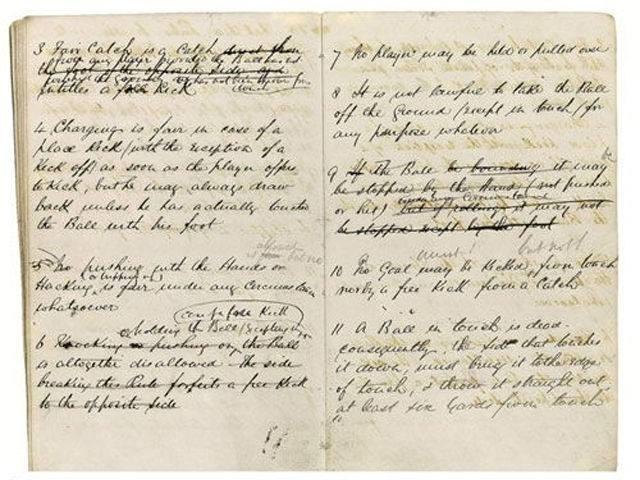 3 Fair Catch is a Catch direct from
from any player provided the Ball has not
the foot of the opposite side and
touched the ground
entitles a free Kick
4 Charging is fair in case of a
place Kick (with the exception of a
Kick off) as soon as the player offers
to Kick, but he may always draw
back unless he has actually touched
the Ball with his foot
5 No pushing with the Hands or
Hacking, or tripping up is fair under any Circumstances
whatsoever
Kick
holding the Ball
6 Knocking or pushing on the Ball
is altogether disallowed The side
breaking this Rule forfeits a free Kick
to the opposite side
7 No player may be held or pulled over
8 It is not lawful to take the Ball
off the Ground (except in touch) for
any purpose whatever
9 If the Ball be bounding it may be
be stopped by the Hand (not pushed
or hit) but if rolling it may not
be stopped except by the foot
but not
10 No Goal may be Kicked from touch
nor by a free Kick from a Catch
11 A Ball in touch is dead
consequently, the side that touches
it down, must bring it to the edge
of touch, & throw it straight out
at least six Yards from touch